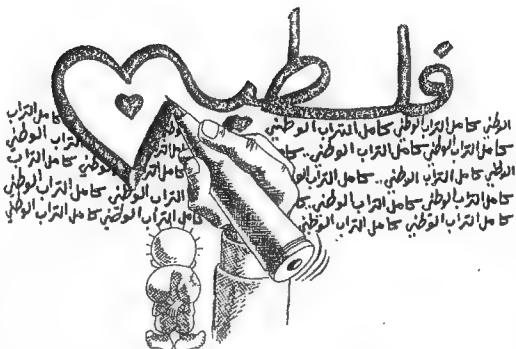 فلسطين
الوطني كامل التراب الوطني كامل التراب الوطني كامل التراب
كامل التراب الوطني كامل التراب الوطني.. كامل التراب الوطني
الوطني كامل التراب الوطني.. كامل التراب كامل التراب الوطني كامل التراب
كامل التراب الوطني كامل التراب الوطني.. التراب الوطني كامل التراب الوطني
كامل التراب الوطني كامل التراب الوطني كامل التراب الوطني كامل التراب الوطني